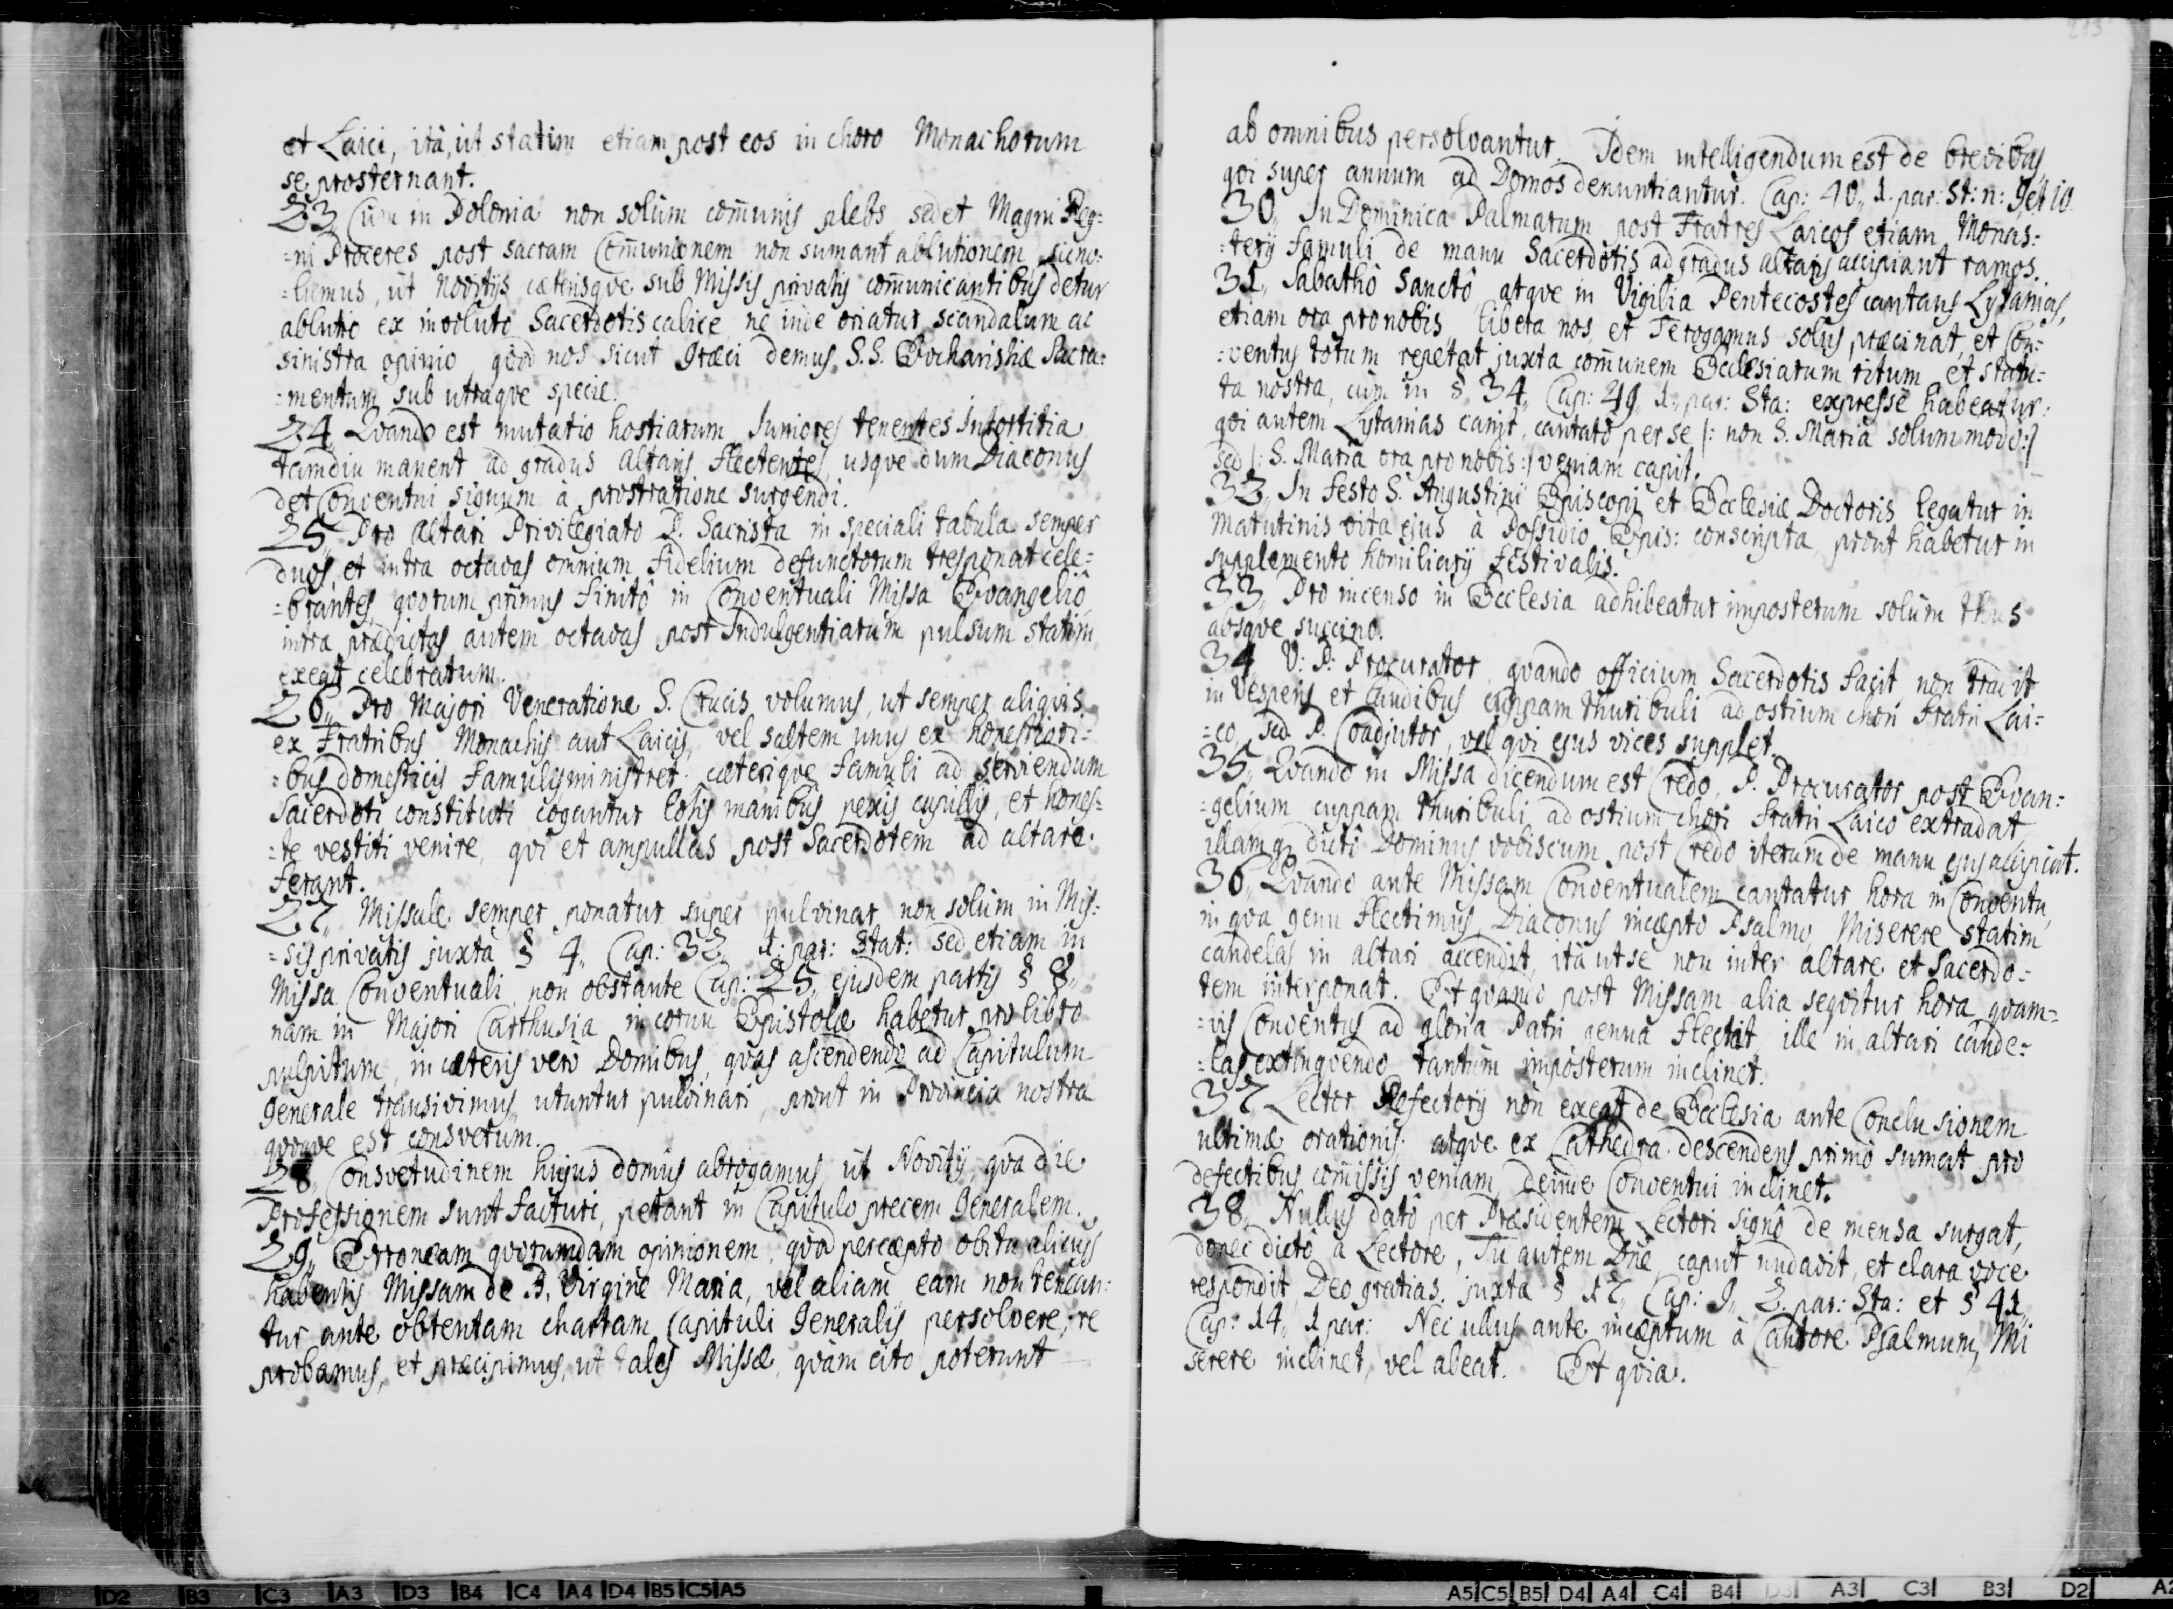 et Laici, itâ, ut statim etiam post eos in choro Monachorum
se prosternant.
23„ Cùm in Polonia non solùm com̄unis plebs sed et Magni Reg=
=ni Proceres post sacram Com̄unionem non sumant ablutionem, sicno=
=lumus, ut Novitijs, cæterisqve sub Missis privatis com̄unicantibus detur
ablutio ex involuto Sacerdotis calice ne inde oriatur scandalum ac
sinistra opinio, qvòd nos sicut Græci demus S.S. Eucharistiæ Sacra=
=mentum sub utraqve specie.
24 Qvando est mutatio hostiarum Juniores tenentes Intortitia
tamdiu manent ad gradus altaris flectentes, usqve dum Diaconus
det Conventui signum à prostratione surgendi.
25„ Pro Altari Privilegiato P. Sacrista in speciali tabula semper
duos, et intra octavas omnium fidelium defunctorum tres ponat cele=
=brantes, qvorum primus finitô in Conventuali Missa Evangeliô,
intra prædictas autem octavas post Indulgentiarum pulsum statim
exeat celebratum.
26„ Pro Majori Veneratione S. Crucis volumus, ut semper aliqvis
ex Fratribus Monachis aut Laicis, vel saltem unus ex honestiori=
=bus domesticis famulis ministret. cæteriqve famuli ad serviendum
Sacerdoti constituti cogantur lotis manibus pexis capillis, et hones=
=te vestiti venire, qvi et ampullas post Sacerdotem ad altare
ferant.
27„ Missale semper ponatur super pulvinar non solùm in Mis=
=sis privatis juxta § 4„ Cap: 32„ 1: par: Stat: sed etiam in
Missa Conventuali non obstante Cap: 25„ ejusdem partis § 8„
nam in Majori Carthusia in cornu Epistolæ habetur pro libro
pulpitum, in cæteris verò Domibus, qvas ascendendo ad Capitulum
Generale transivimus, utuntur pulvinari, prout in Provincia nostra
qvoqve est consvetum.
28„ Consvetudinem hujus domûs abrogamus, ut Novitij, qva die
Professionem sunt facturi, petant in Capitulo precem Generalem.
29„ Erroneam qvorumdam opinionem, qvòd percepto obitu alicujs
habentis Missam de B. Virgine Maria, vel aliam, eam non tenean=
tur ante obtentam chartam Capituli Generalis persolvere, re
probamus, et præcipimus, ut tales Missæ, qvàm citò poterunt
ab omnibus persolvantur. Idem intelligendum est de brevibus,
qvi super annum ad Domos denuntiantur. Cap: 40„ 1. par: St: n: 9 et 10.
30„ In Dominica Palmarum post Fratres Laicos etiam Monas=
=terij famuli de manu Sacerdotis ad gradus altaris accipiant ramos.
31„ Sabathô Sanctô atqve in Vigilia Pentecostes cantans Lytanias,
etiam ora pro nobis, libera nos, et Te rogamus solus præcinat, et Con=
=ventus totum repetat juxta com̄unem Ecclesiarum ritum, et statu=
ta nostra, cùm in § 34„ Cap: 49 1„ par: Sta: expressè habeatur:
qvi autem Lytanias canit, cantatô per se |: non S. Maria solummodo:|
sed |: S. Maria ora pro nobis:| veniam capit.
32„ In festo S. Augustini Episcopi et Ecclesiæ Doctoris legatur in
Matutinis vita ejus à Possidio Epis: conscripta, prout habetur in
supplemento homiliarij festivalis.
33„ Pro incenso in Ecclesia adhibeatur imposterum solùm thus
absqve succino.
34 V: P: Procurator, qvando officium Sacerdotis facit non tradit
in Vesperis et Laudibus cuppam thuribuli ad ostium chori fratri Lai=
=co, sed P. Coadjutor, vel qvi ejus vices supplet.
35„ Qvando in Missa dicendum est Credo, P. Procurator post Evan=
=gelium cuppam thuribuli ad ostium chori fratri Laico extradat
illamqꝫ dictô Dominus vobiscum post Credo iterum de manu ejus accipiat.
36„ Qvando ante Missam Conventualem cantatur hora in Conventu,
in qva genu flectimus, Diaconus incepto Psalmo, Miserere statim
candelas in altari accendit, ità ut se non inter altare et Sacerdo=
tem interponat. Et qvando post Missam alia seqvitur hora, qvam=
=vis Conventus ad gloria Patri genua flectat, ille in altari cande=
=las extingvendo, tantùm imposterum inclinet.
37 Lector Refectorij non exeat de Ecclesia ante Conclusionem
ultimæ orationis, atqve ex Cathedra descendens primò sumat pro
defectibus com̄issis veniam, deinde Conventui inclinet.
38„ Nullus datô per Præsidentem Lectori signô de mensa surgat,
donec dictô a Lectore, Tu autem Dn̄e, caput nudavit, et clara voce
respondit Deo gratias. juxta § 17„ Cap: 9„ 2. par: Sta: et § 41„
Cap: 14„ 1 par: Nec ullus ante inceptum à Cantore Psalmum, Mi
serere inclinet, vel abeat. Et qvia.